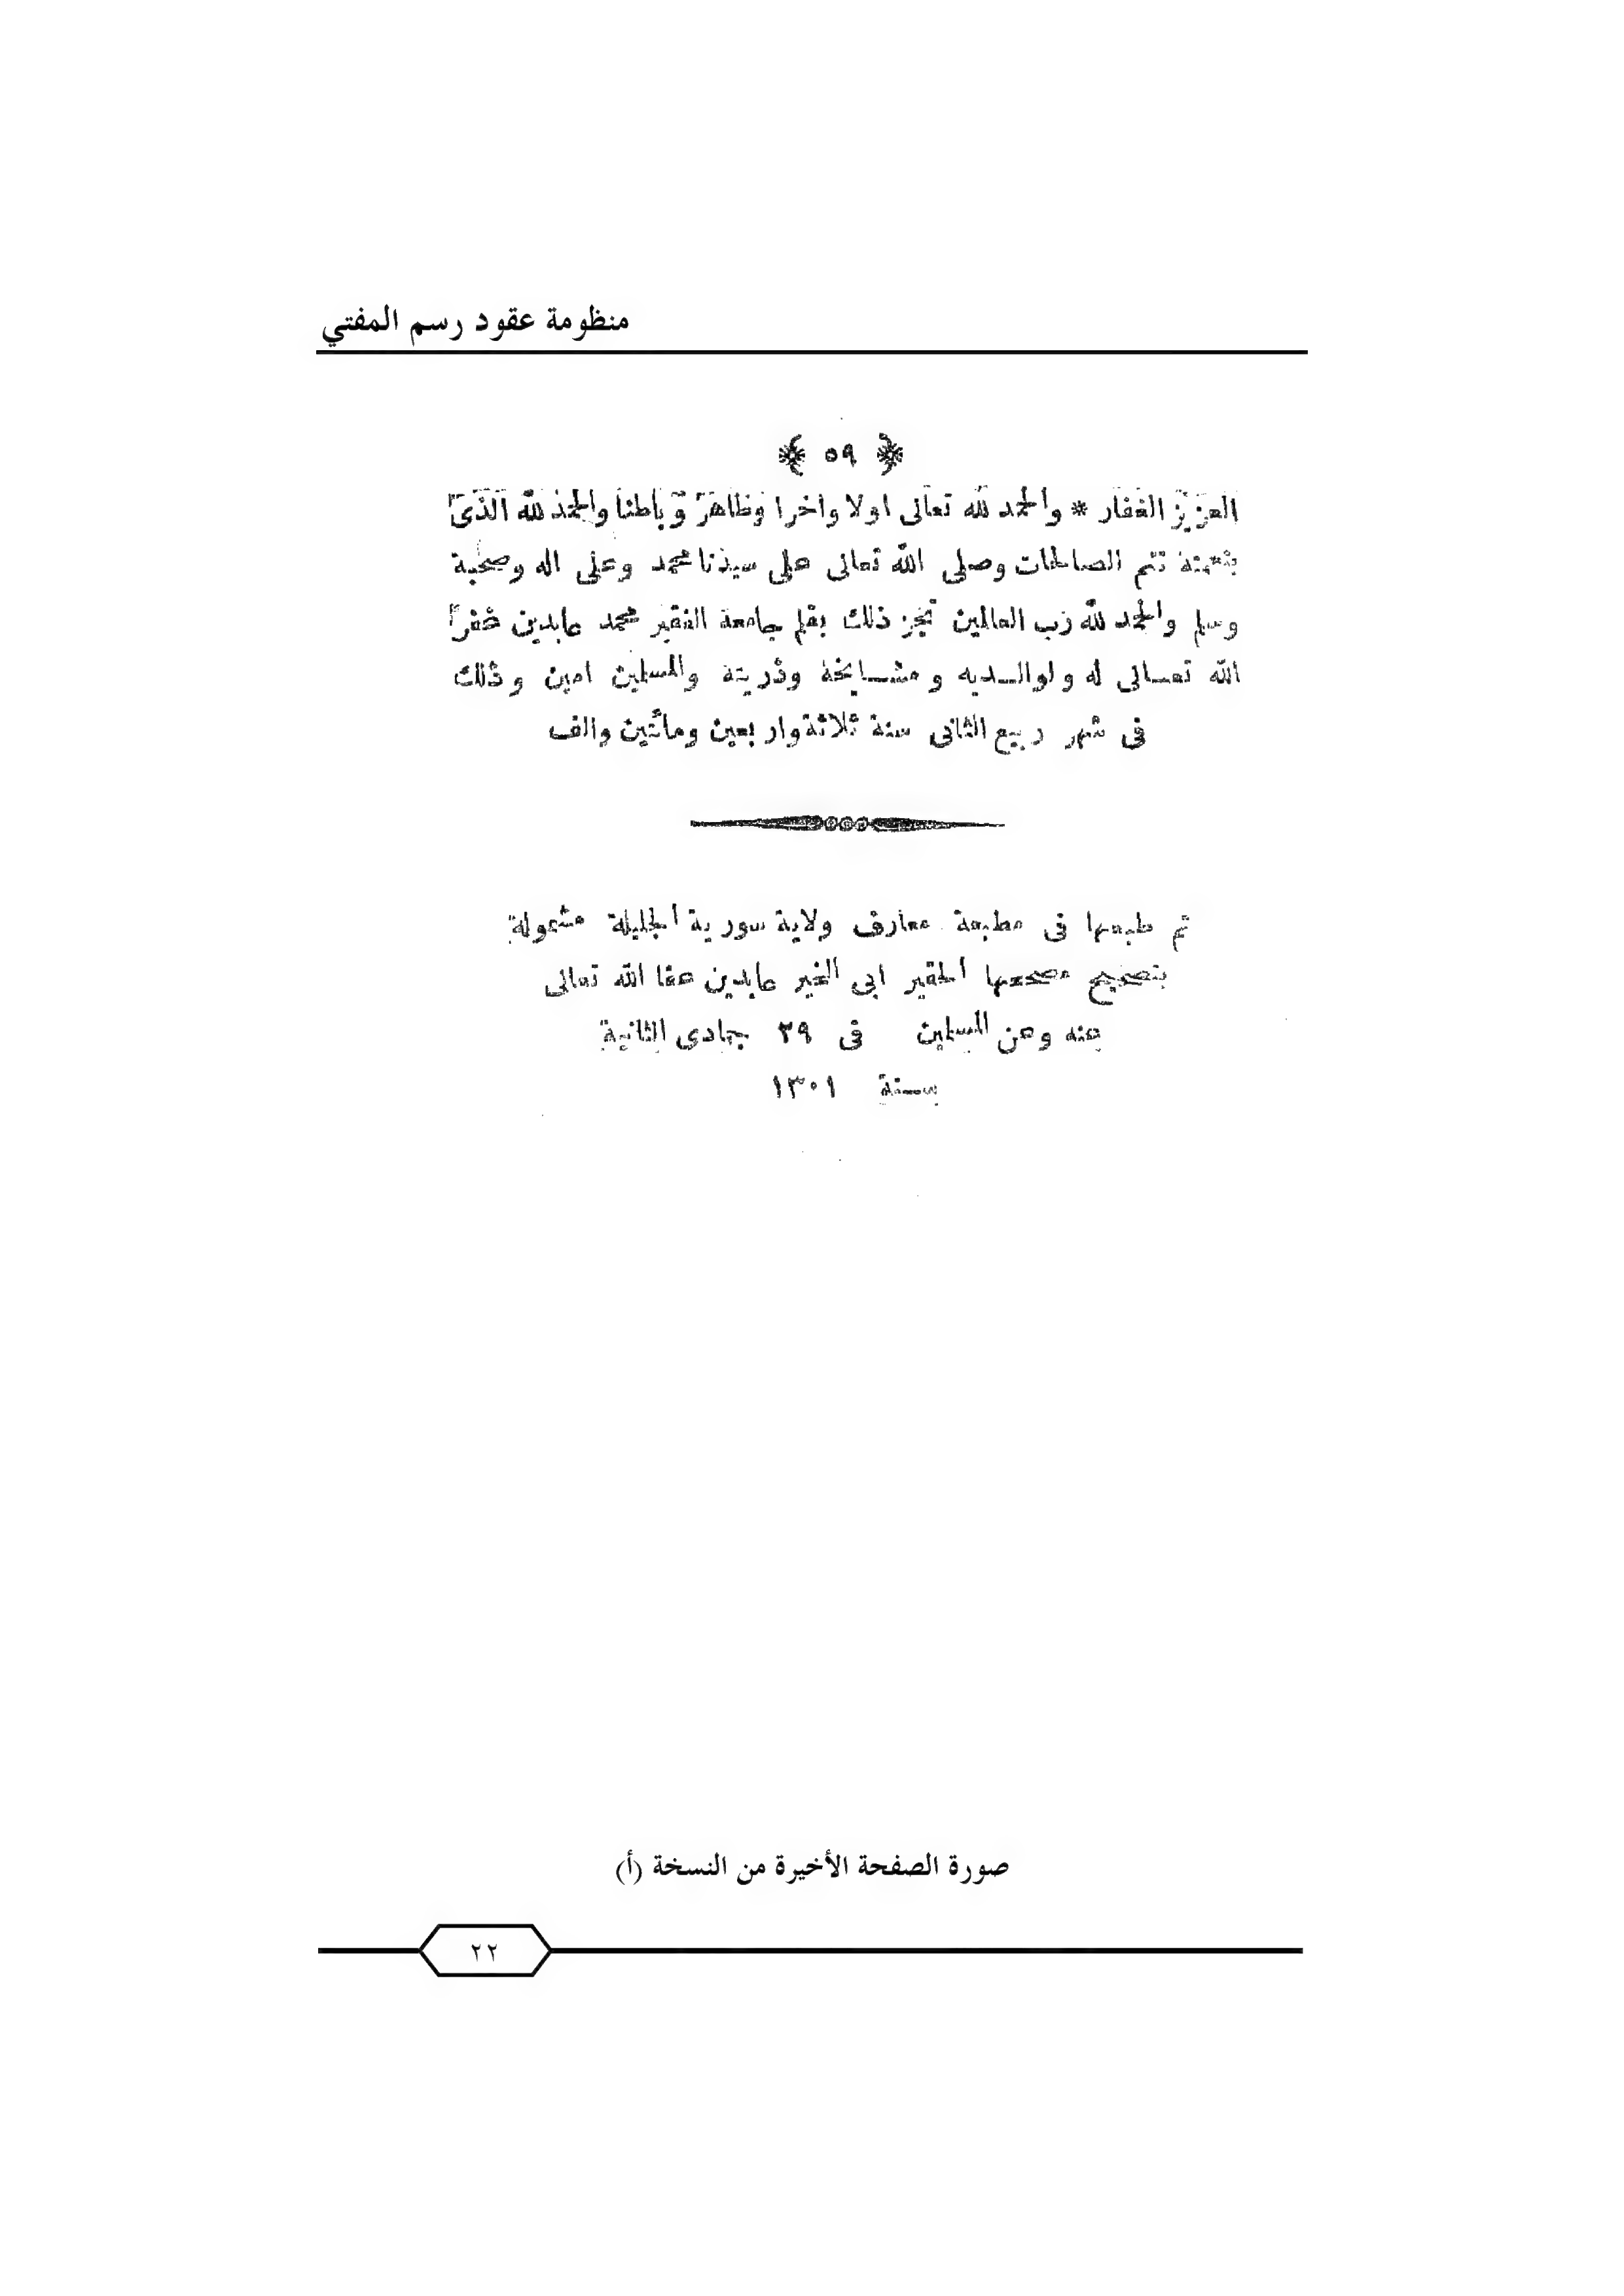 منظومة عقود رسم المفتي
﴿ ٥٩ ﴾
العزيز الغفار * والحمد لله تعالى اولا واخرا وظاهرا وباطنا والحمد لله الذى
بنعمته تتم الصالحات وصلى الله تعالى على سيدنا محمد وعلى اله وصحبه
وسلم والحمد لله رب العالمين نجز ذلك بقلم جامعه الفقير محمد عابدين غفر
الله تعالى له ولوالديه ومشايخه وذريته والمسلمين امين وذلك
فى شهر ربيع الثانى سنة ثلاثة واربعين ومائتين والف
تم طبعها فى مطبعة معارف ولاية سورية الجليلة مشمولة
بتصحيح مصححها الحقير ابى الخير عابدين عفا الله تعالى
عنه وعن المسلمين فى ٢٩ جمادى الثانية
سنة ١٣٠١
صورة الصفحة الأخيرة من النسخة (أ)
٢٢